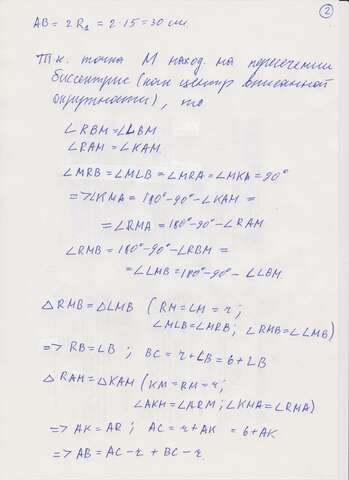 2
AB = 2R₁ = 2·15 = 30 см.
Т.к. точка M наход. на пересечении
биссектрис (как центр вписанной
окружности), то
∠RBM = ∠LBM
∠RAM = ∠KAM.
∠MRB = ∠MLB = ∠MRA = ∠MKA = 90°
=> ∠KMA = 180° - 90° - ∠KAM =
= ∠RMA = 180° - 90° - ∠RAM
∠RMB = 180° - 90° - ∠RBM =
= ∠LMB = 180° - 90° - ∠LBM
△RMB = △LMB (RM = LM = r;
∠MLB = ∠MRB; ∠RMB = ∠LMB)
=> RB = LB; BC = r + LB = 6 + LB
△RAM = △KAM (KM = RM = r;
∠AKM = ∠ARM; ∠KMA = ∠RMA)
=> AK = AR; AC = r + AK = 6 + AK
=> AB = AC - r + BC - r